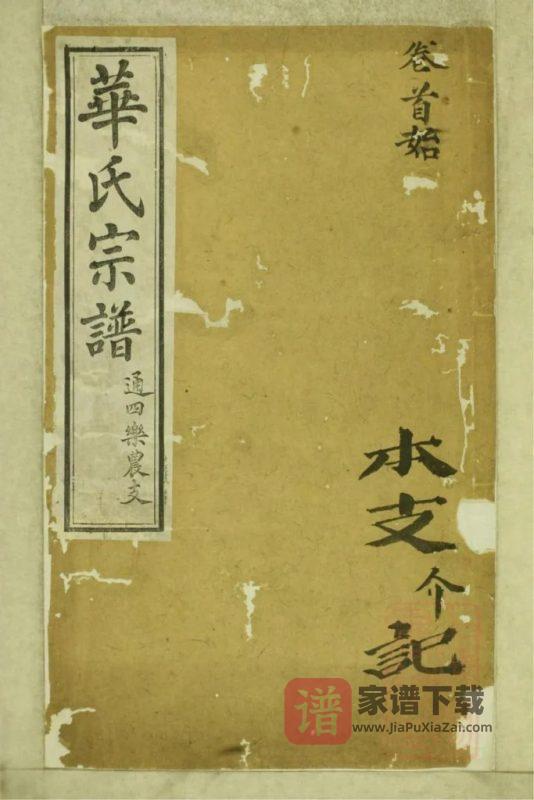 卷首始
水支介記
華氏宗譜
通四樂農支
谱
家谱下载
www.JiaPuXiaZai.com